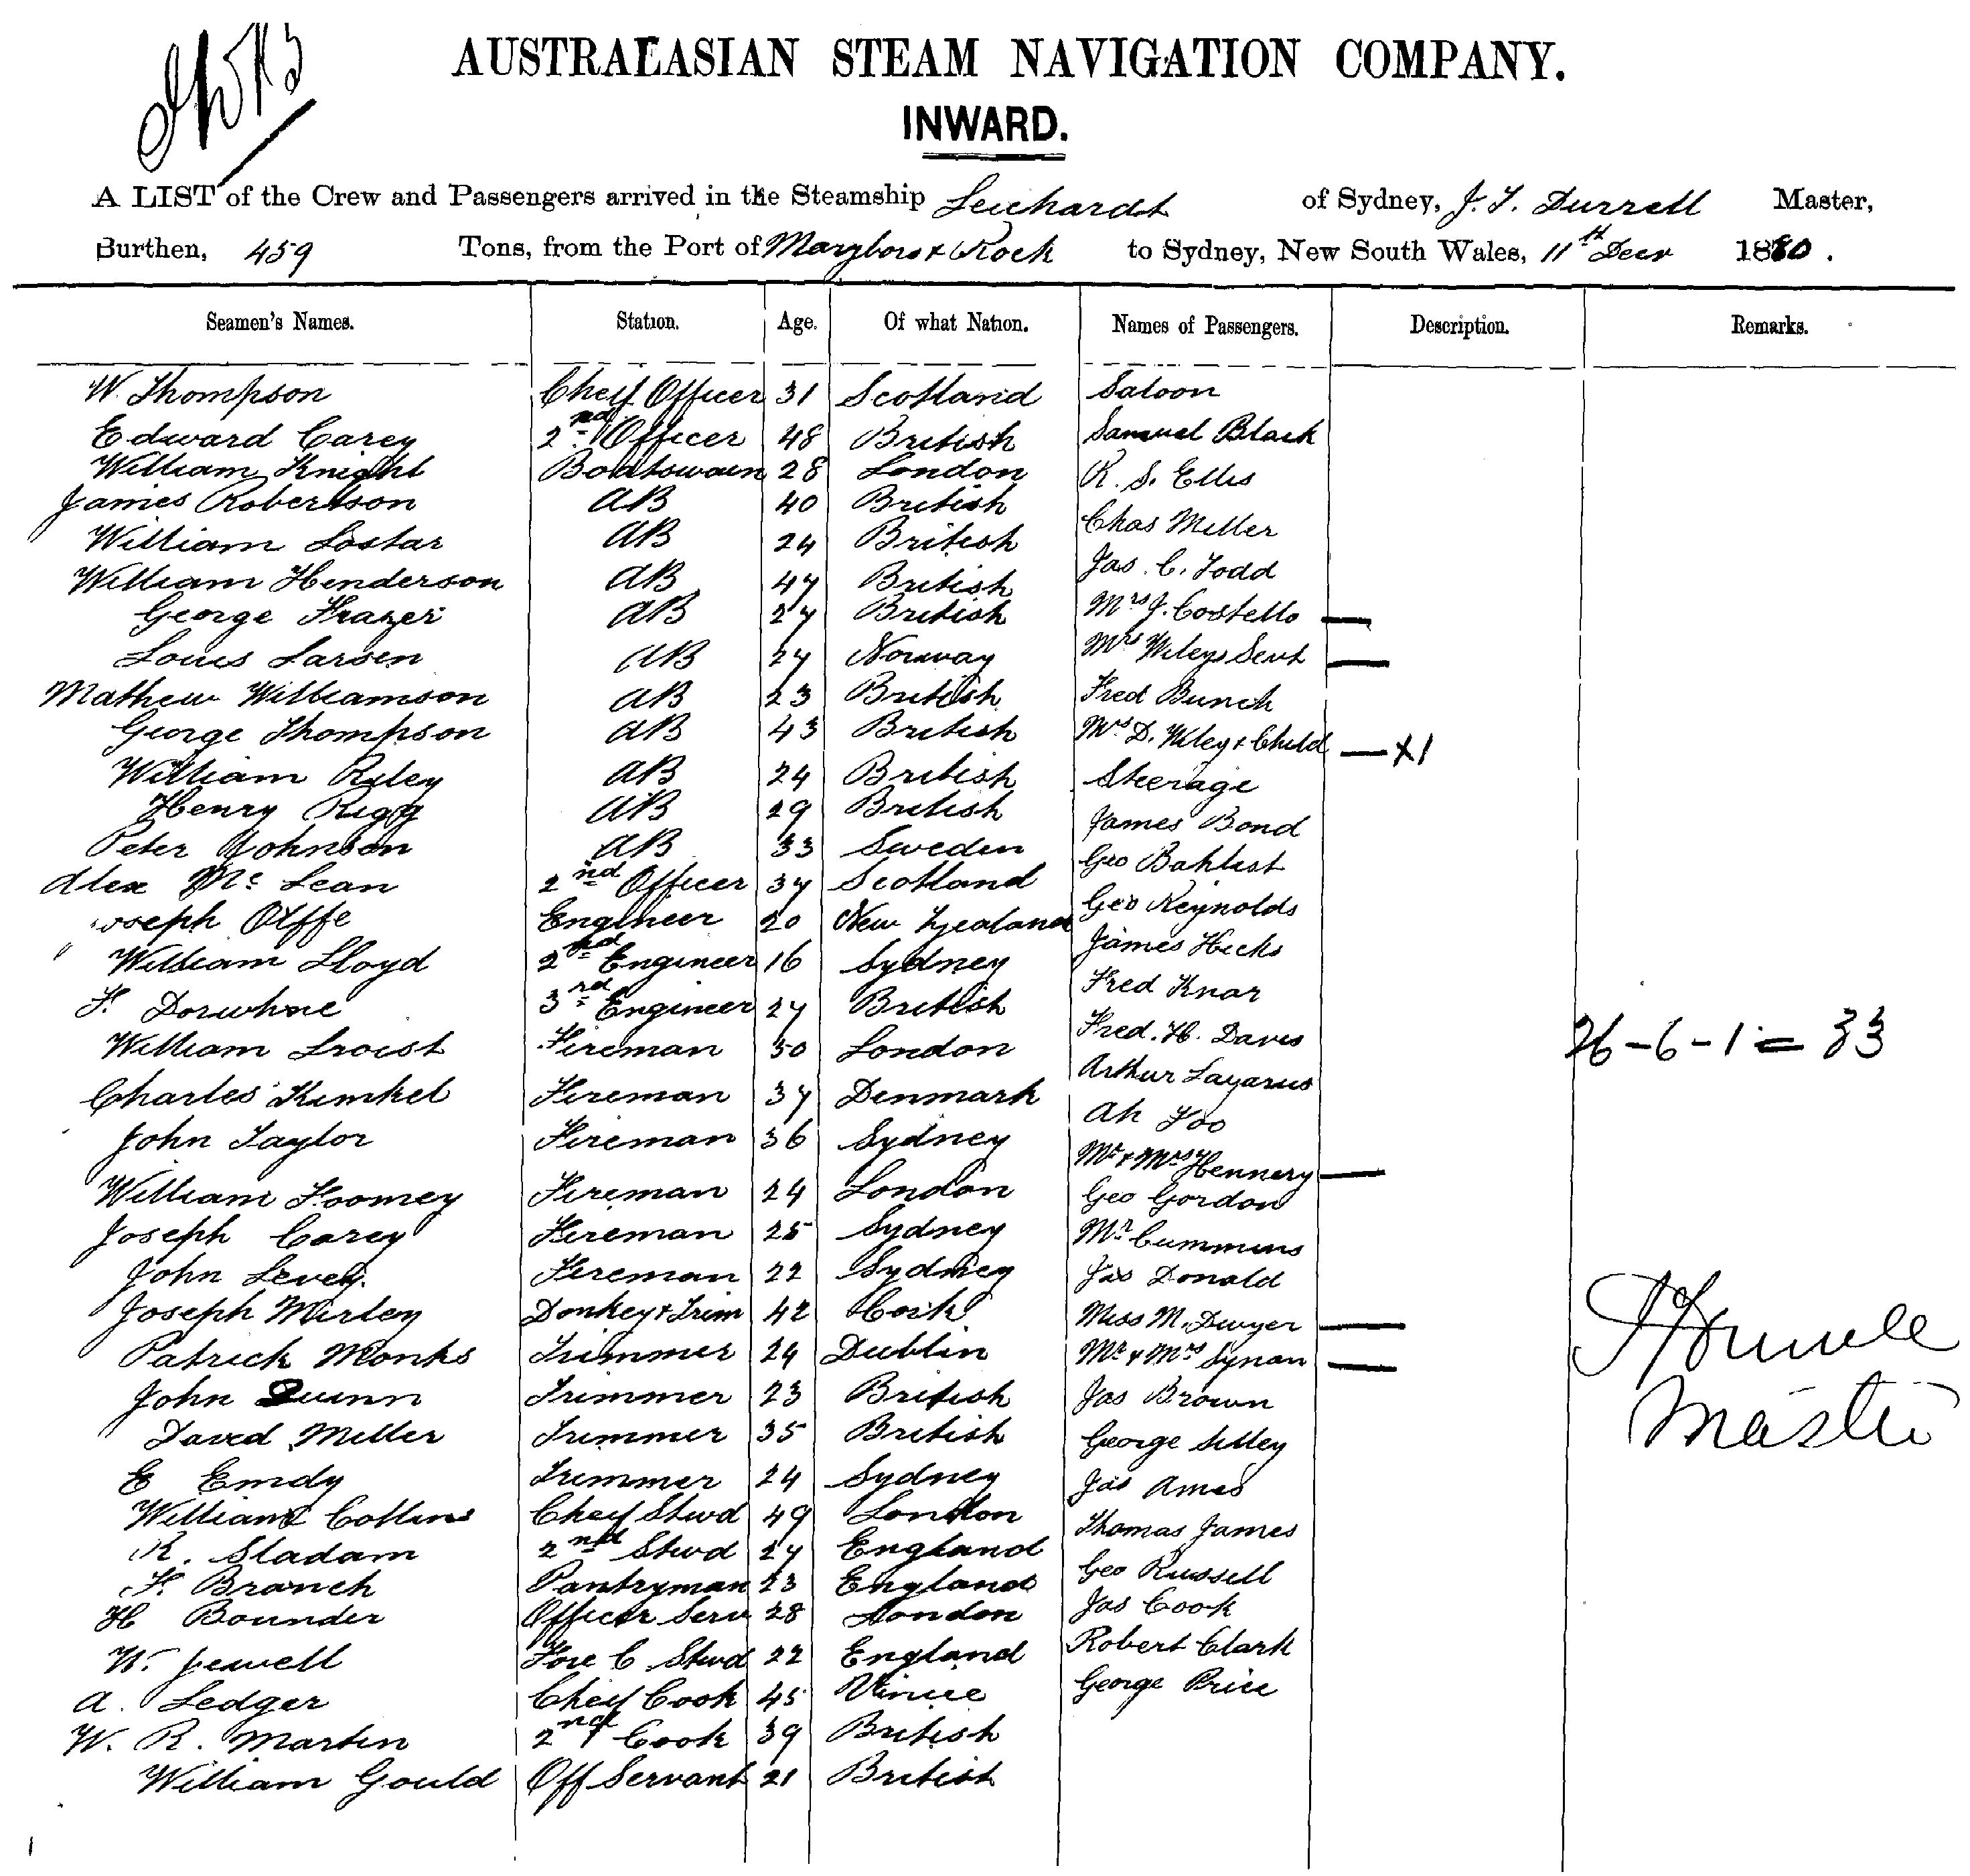 AUSTRALASIAN STEAM NAVIGATION COMPANY.
INWARD.
A LIST of the Crew and Passengers arrived in the Steamship Leichardt of Sydney, J. T. Durrell Master,
Burthen, 459 Tons, from the Port of Maryboro & Rock to Sydney, New South Wales, 11th Decr 1880.
Seamen's Names. Station. Age. Of what Nation. Names of Passengers. Description. Remarks.
W. Thompson Cheif Officer 31 Scotland Saloon
Edward Carey 2nd Officer 48 British Samuel Black
William Knight Boatswain 28 London R. S. Ellis
James Robertson AB 40 British Chas Miller
William Lostar AB 24 British Jas. C. Todd
William Henderson AB 47 British Mrs J. Costello —
George Frazer AB 27 British Mrs Wileys Sevt —
Louis Larsen AB 27 Norway Fred Bunch
Mathew Williamson AB 23 British Mrs D. Wiley & Child — X1
George Thompson AB 43 British Steerage
William Ryley AB 24 British James Bond
Henry Rigg AB 29 British Geo Bahlist
Peter Johnson AB 33 Sweden Geo Reynolds
Alex Mc Lean 2nd Officer 37 Scotland James Hicks
Joseph Olffe Engineer 20 New Zealand Fred Knar
William Lloyd 2nd Engineer 16 Sydney Fred. H. Davis
F. 3rd Engineer 27 British Arthur Lazarus
William Fireman 30 London Ah Foo
Charles Kimkel Fireman 37 Denmark Mr & Mrs Hennery —
John Taylor Fireman 36 Sydney Geo Gordon
William Foomey Fireman 24 London Mr Cummins
Joseph Carey Fireman 25 Sydney Jas Donald
John Levey. Fireman 22 Sydney Miss M. Dwyer —
Joseph Mirley Donkey & Trim 42 Cork Mr & Mrs Synan —
Patrick Monks Trimmer 24 Dublin Jas Brown
John Quinn Trimmer 23 British George Silley
David Miller Trimmer 35 British Jas Ames
E Emdy Trimmer 24 Sydney Thomas James
William Collins Cheif Stwd 49 London Geo Russell
R. Sladam 2nd Stwd 27 England Jas Cook
F. Branch Pantryman 23 England Robert Clark
H Bounder Officer Serv 28 London George Price
W. Jewell Fore C Stwd 22 England
A. Ledger Cheif Cook 45 Vinice
W. R. Martin 2nd Cook 39 British
William Gould Off Servant 21 British
26-6-1 = 33
Master